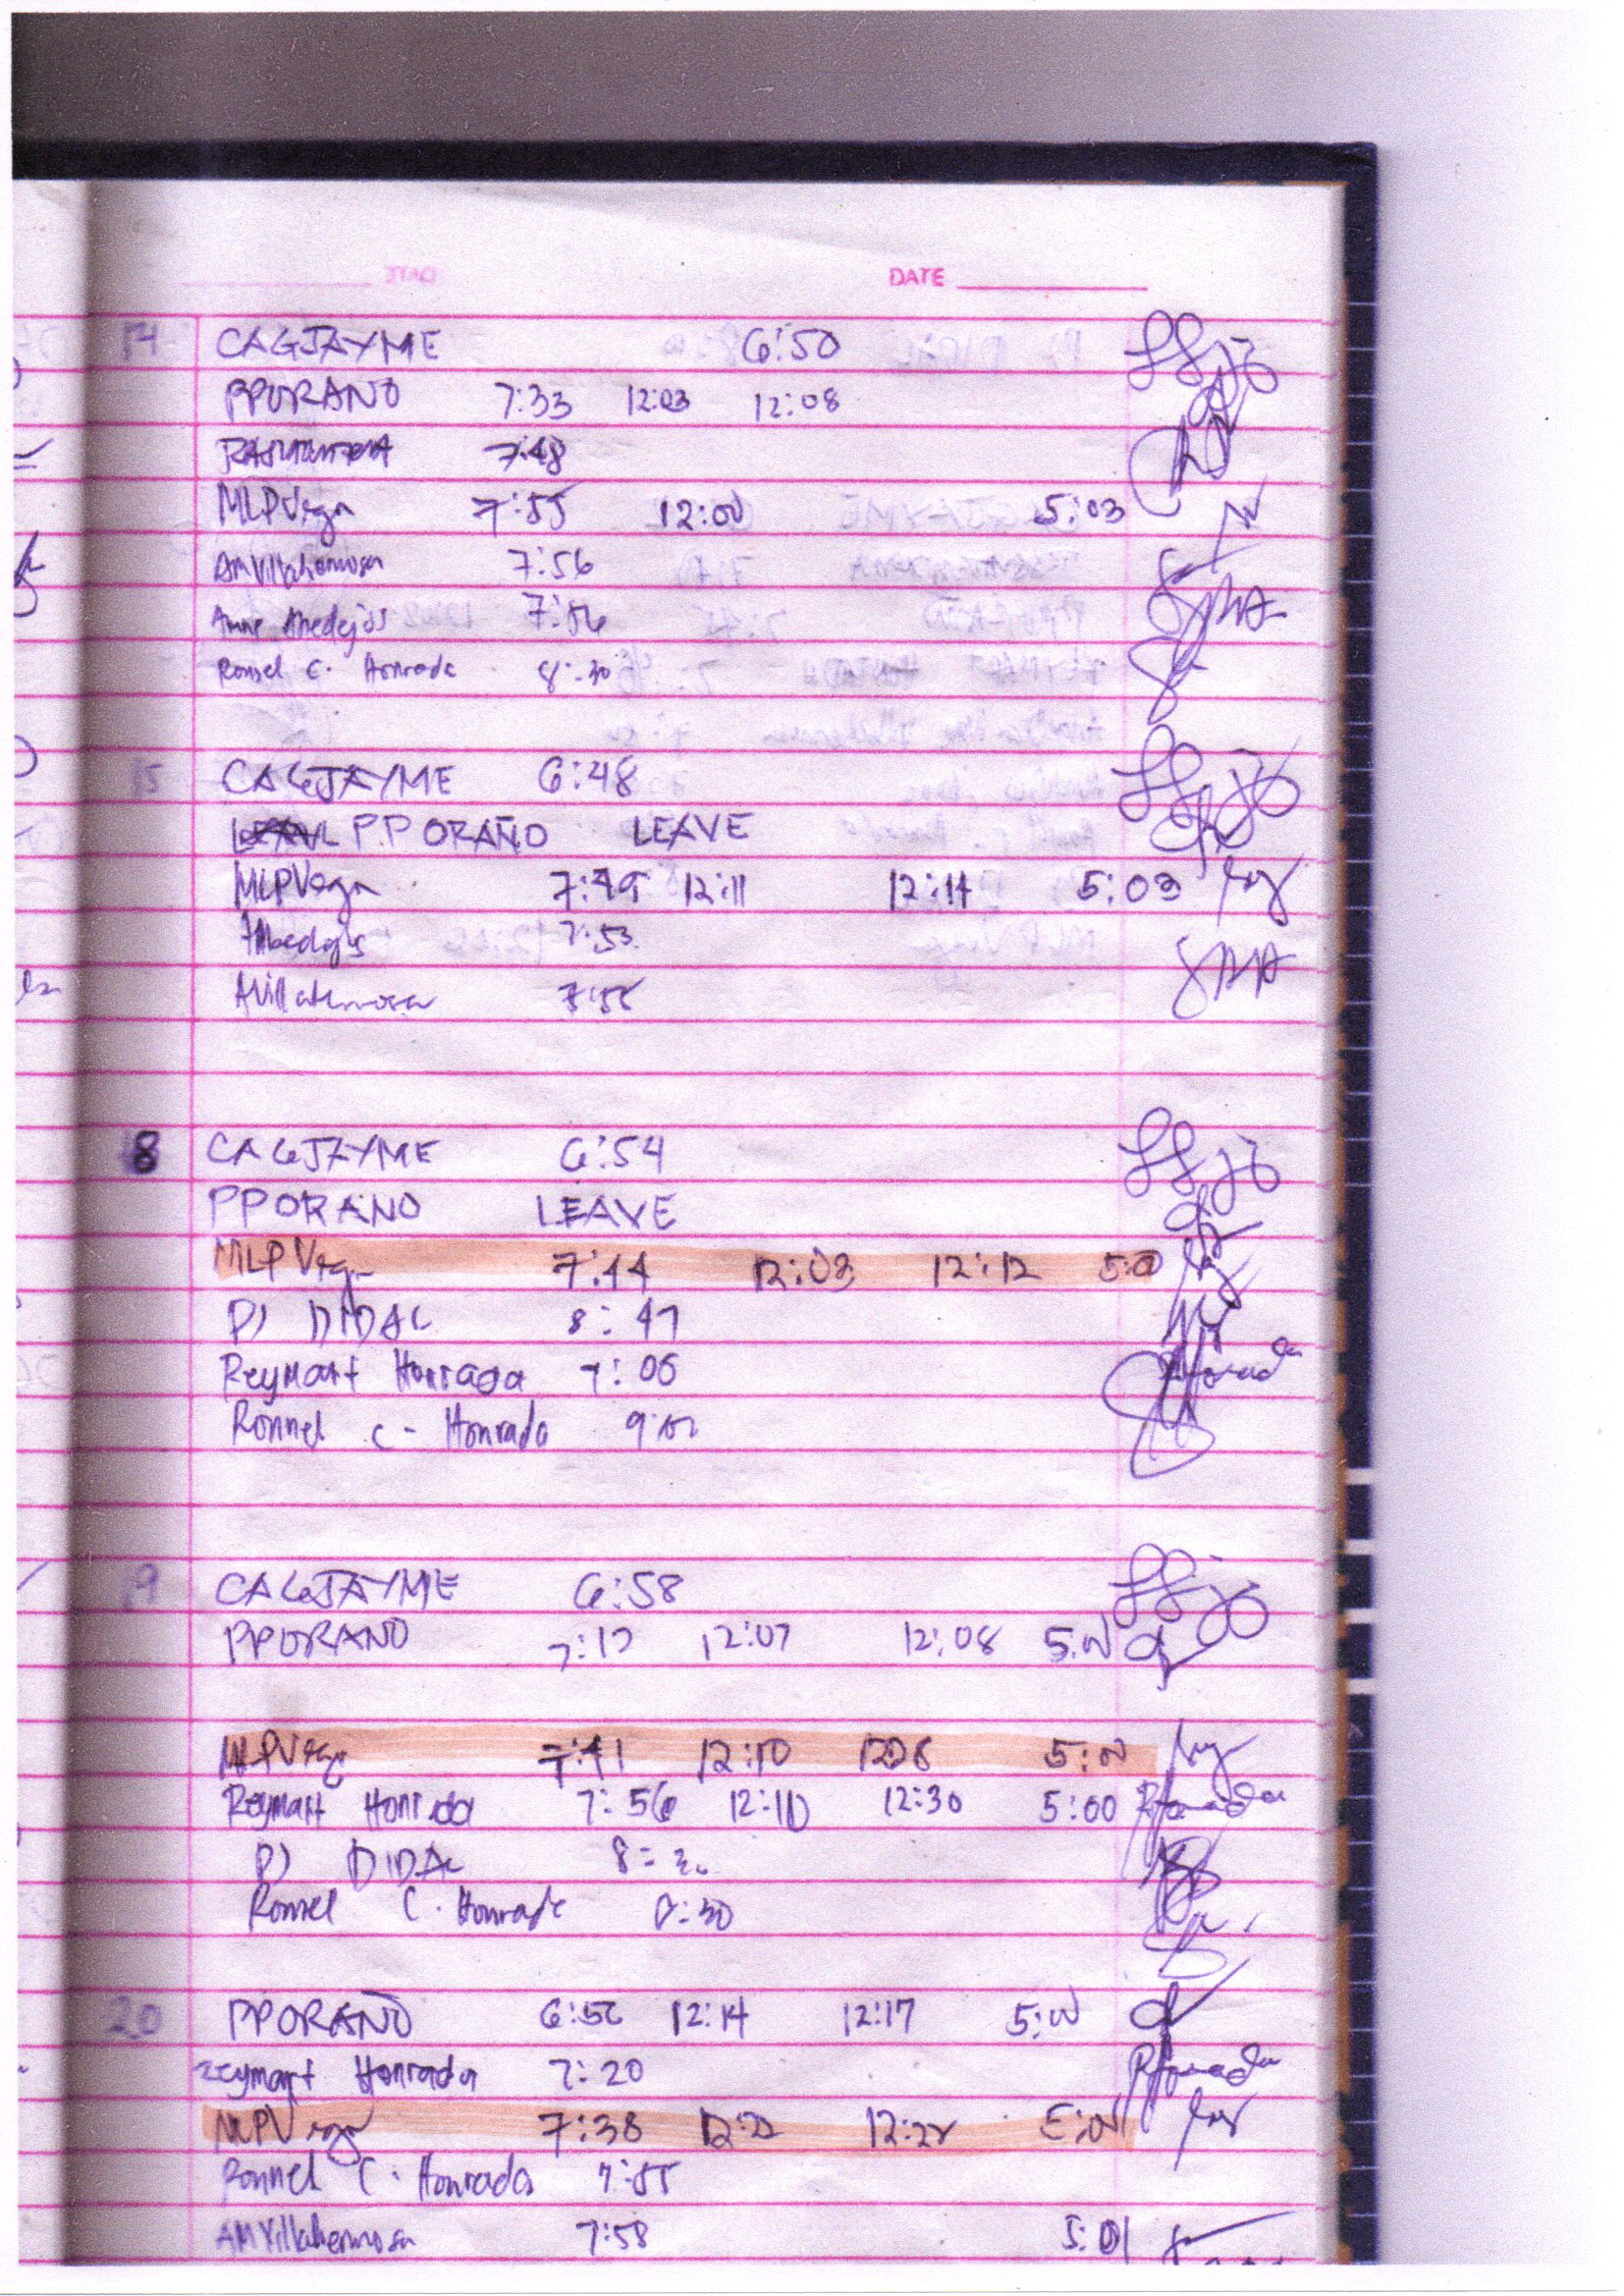 DATE
14 CAGJAYME 6:50
PPORANO 7:33 12:03 12:08
7:48
MLPVega 7:55 12:00 5:03
AMVillahermosa 7:56
Anne Abedejos 7:56
Ronnel C. Honrada 8:30
15 CAGJAYME 6:48
PPORAÑO LEAVE
MLPVega 7:49 12:11 12:14 5:03
7:53
AVillahermosa 7:55
18 CAGJAYME 6:54
PPORANO LEAVE
MLPVega 7:44 12:03 12:12
PJ DIDAL 8:47
Reymart Honrada 7:06
Ronnel C. Honrada 9:00
19 CAGJAYME 6:58
PPORANO 7:17 12:07 12:08 5:00
MLPVega 7:41 12:10 5:00
Reymart Honrada 7:56 12:10 12:30 5:00
PJ DIDAL
Ronnel C. Honrada 8:30
20 PPORANO 6:56 12:14 12:17 5:00
Reymart Honrada 7:20
MLPVega 7:38 5:00
Ronnel C. Honrada 7:55
AMVillahermosa 7:58 5:01